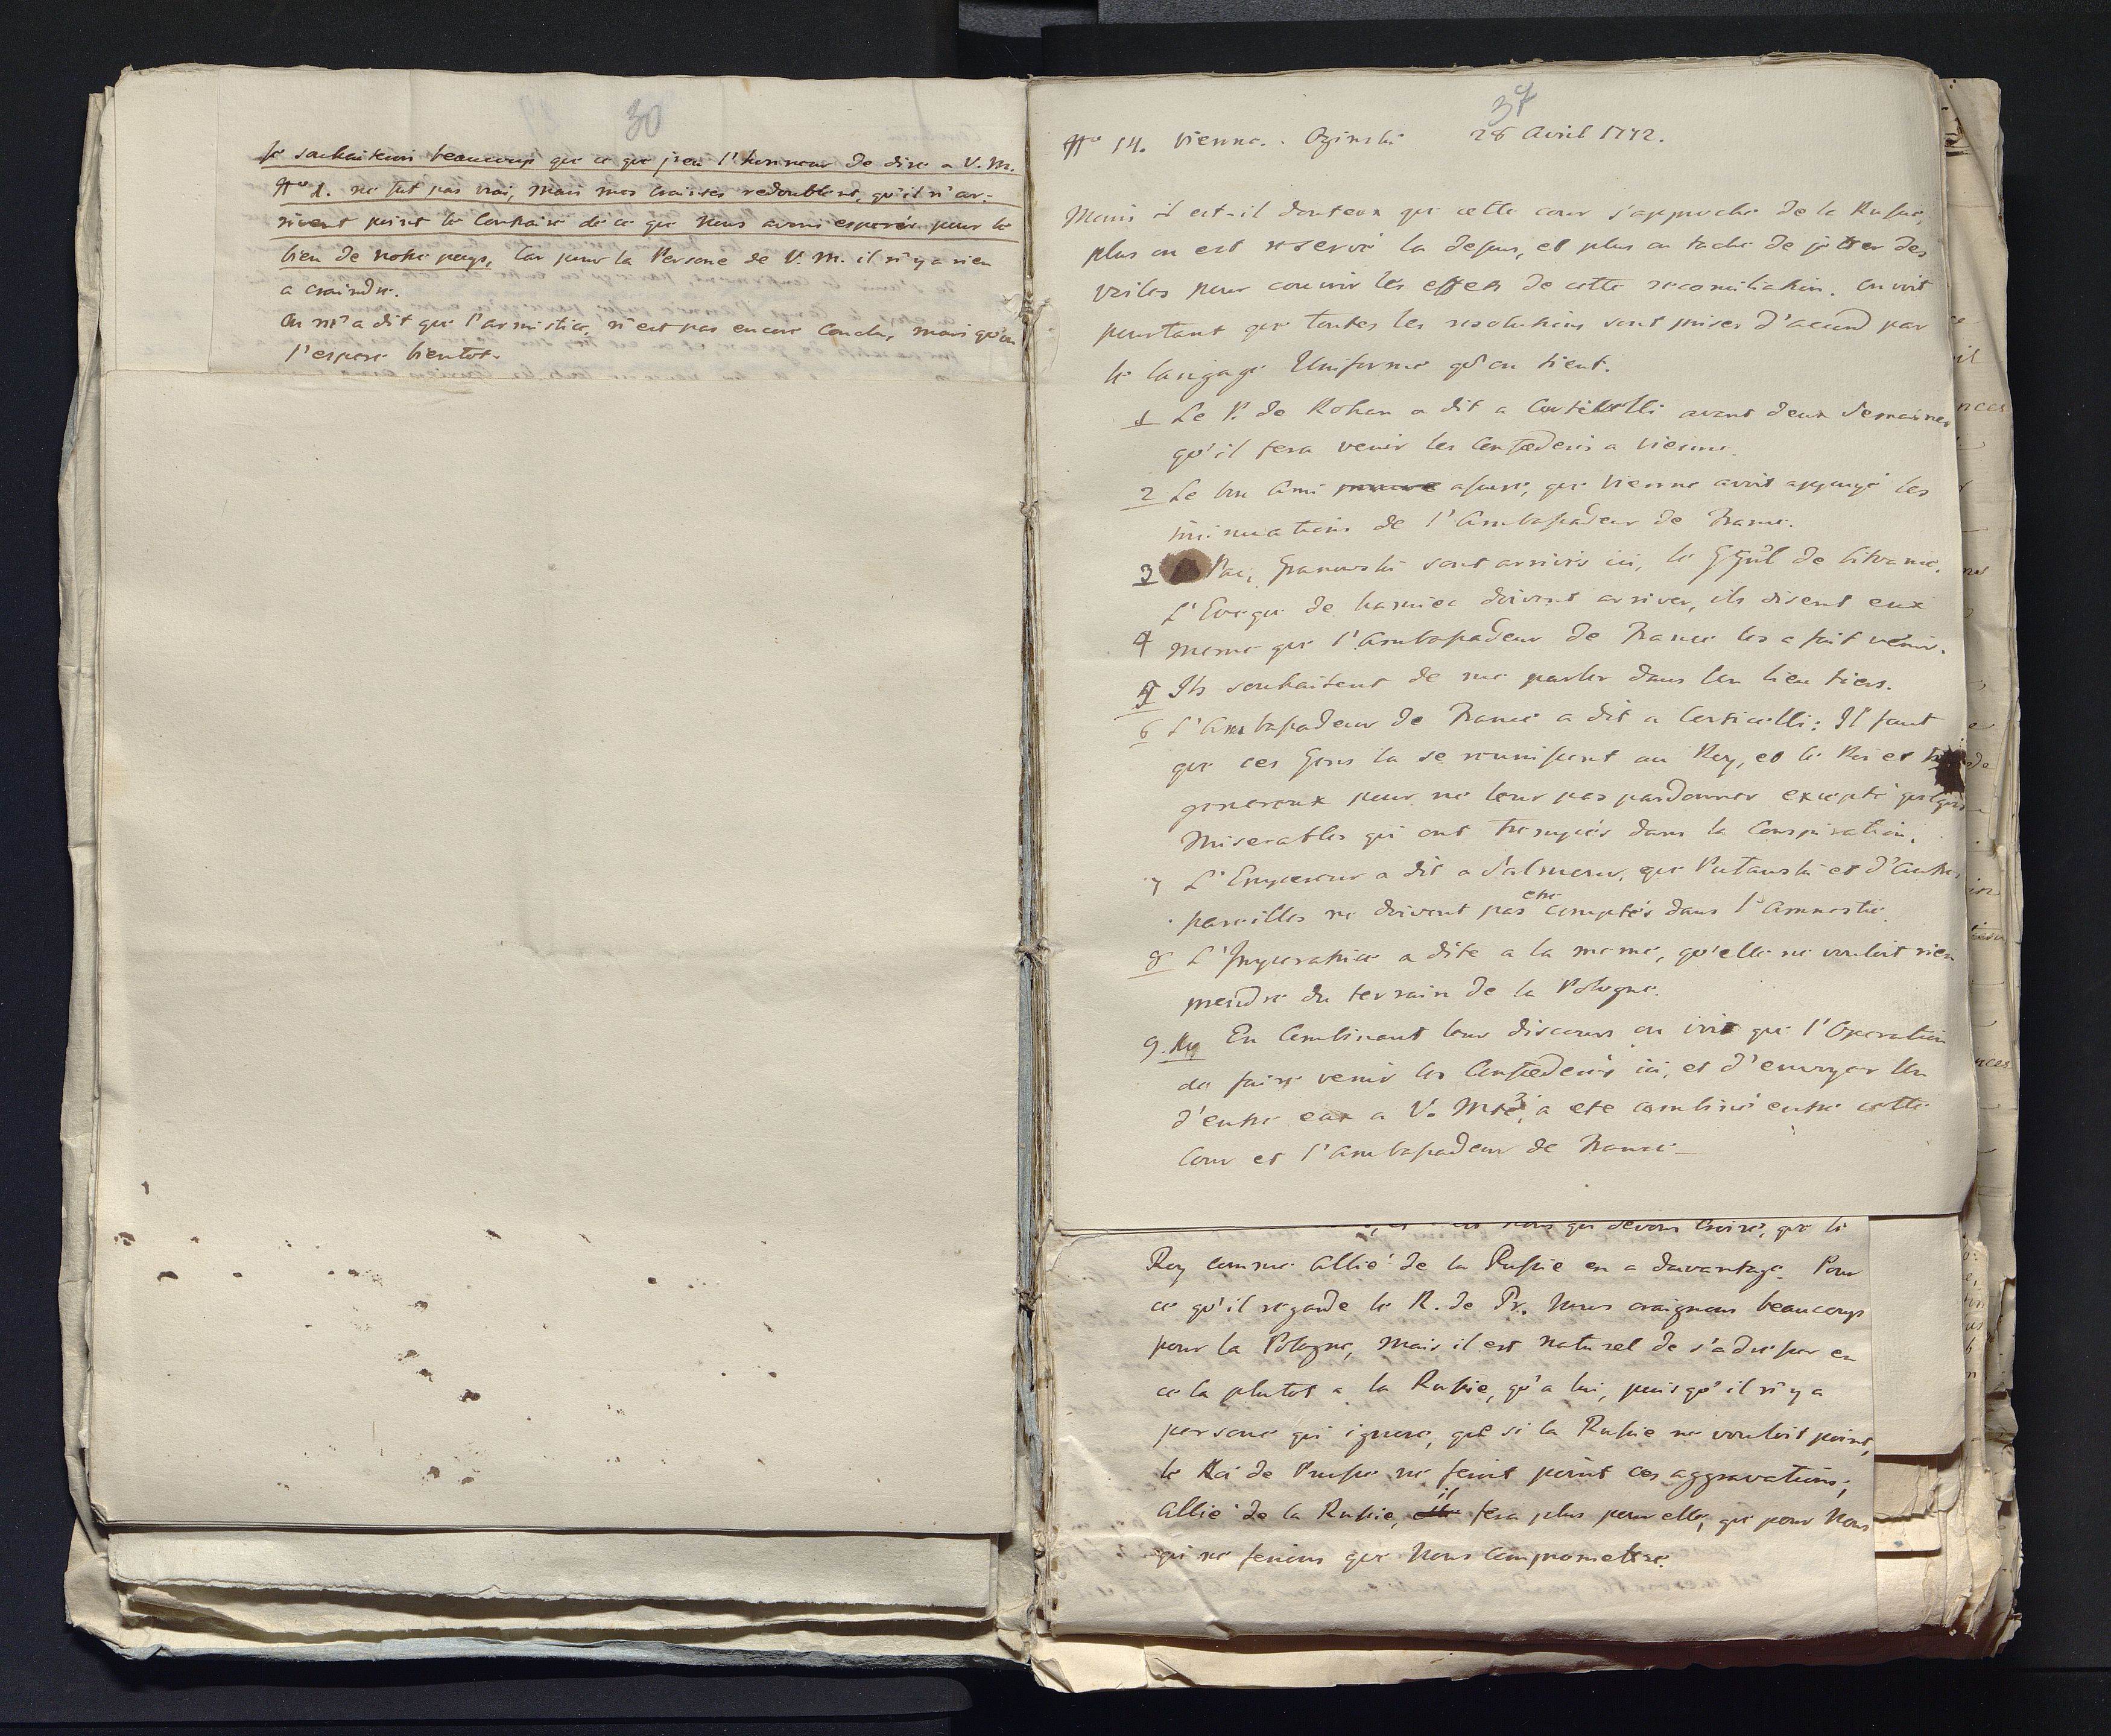 30
Je souhaiterois beaucoup que ce que j'eu l'honneur de dire a V. M.
Nro 1. ne fut pas vrai, mais mes craintes redoublent, qu'il n'ar-
rivent point le contraire de ce que Nous avons esperés pour le
bien de notre pays, Car pour la Persone de V. M. il n'y a rien
a craindre.
On m'a dit que l'armistice n'est pas encore conclu, mais qu'on
l'espere bientot.
Nro 14. Vienne. Oginski 28 Avril 1772.
Moins il est-il douteux que cette cour s'approche de la Russie,
plus on est reservé la desus, et plus on tache de jetter des
voiles pour couvrir les effets de cette reconciliation. On voit
pourtant que toutes les resolutions sont prises d'acord par
le langage Uniforme qu'on tient.
1 Le P. de Rohan a dit a avant deux Semaines
qu'il fera venir les Confœderés a Vienne.
2 Le bon Ami assure, que Vienne avoit appuyé les
insinuations de l'Ambassadeur de France.
3 Pac, Granowski sont arrivés ici, le GGnl de Litvanie.
L'Eveque de Kamiec doivent arriver, ils disent eux
4 meme que l'Ambassadeur de France les a fait venir.
5 Ils souhaitent de me parler dans Un lieu tiers.
6 L'Ambassadeur de France a dit a Corticelli: Il faut
que ces Gens la se reunissent au Roy, et le Roi est
genereux pour ne leur pas pardonner excepté quelques
Miserables qui ont trempés dans la Conspiration.
7 L'Empereur a dit a Salmour, que Putawski et d'autres
pareilles ne doivent pas etre comptés dans l'Amnestie.
8 L'Imperatrice a dite a la meme, qu'elle ne vouloit rien
prendre du terrain de la Pologne.
9. En Combinant leur discours on voit que l'Operation
de faire venir les Confœderés ici, et d'envoyer Un
d'entre eux a V. Mté, a ete combiné entre cette
Cour et l'Ambassadeur de France
nous qui devons croire, que le
Roy comme Allié de la Russie en a davantage. Pour
ce qu'il regarde le R. de Pr. Nous craignons beaucoup
pour la Pologne, Mais il est naturel de s'adresser en
ce la plutot a la Russie, qu'a lui, puisqu'il n'y a
persone qui ignore, que si la Russie ne vouloit point,
le Roi de Prusse ne feroit point ces aggravations;
Allié de la Russie, il fera plus pour elle, que pour Nous
qui ne ferions que Nous Compromettre.